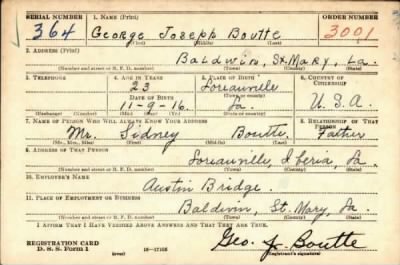 SERIAL NUMBER 1. NAME (Print) ORDER NUMBER
364 George Joseph Boutte 3001
(First) (Middle) (Last)
2. ADDRESS (Print)
Baldwin, St. Mary, La.
(Number and street or R. F. D. number) (Town) (County) (State)
3. TELEPHONE 4. AGE IN YEARS 5. PLACE OF BIRTH 6. COUNTRY OF CITIZENSHIP
23 Loreauville
(Town or county)
DATE OF BIRTH
11-9-16. La. U.S.A.
(Exchange) (Number) (Mo.) (Day) (Yr.) (State or country)
7. NAME OF PERSON WHO WILL ALWAYS KNOW YOUR ADDRESS 8. RELATIONSHIP OF THAT PERSON
Mr. Sidney Boutte. Father
(Mr., Mrs., Miss) (First) (Middle) (Last)
9. ADDRESS OF THAT PERSON
Loreauville, Iberia, La.
(Number and street or R. F. D. number) (Town) (County) (State)
10. EMPLOYER'S NAME
Austin Bridge.
11. PLACE OF EMPLOYMENT OR BUSINESS
Baldwin, St. Mary, La
(Number and street or R. F. D. number) (Town) (County) (State)
I AFFIRM THAT I HAVE VERIFIED ABOVE ANSWERS AND THAT THEY ARE TRUE.
REGISTRATION CARD Geo. J. Boutte
D. S. S. Form 1 (over) 16-17105 (Registrant's signature)